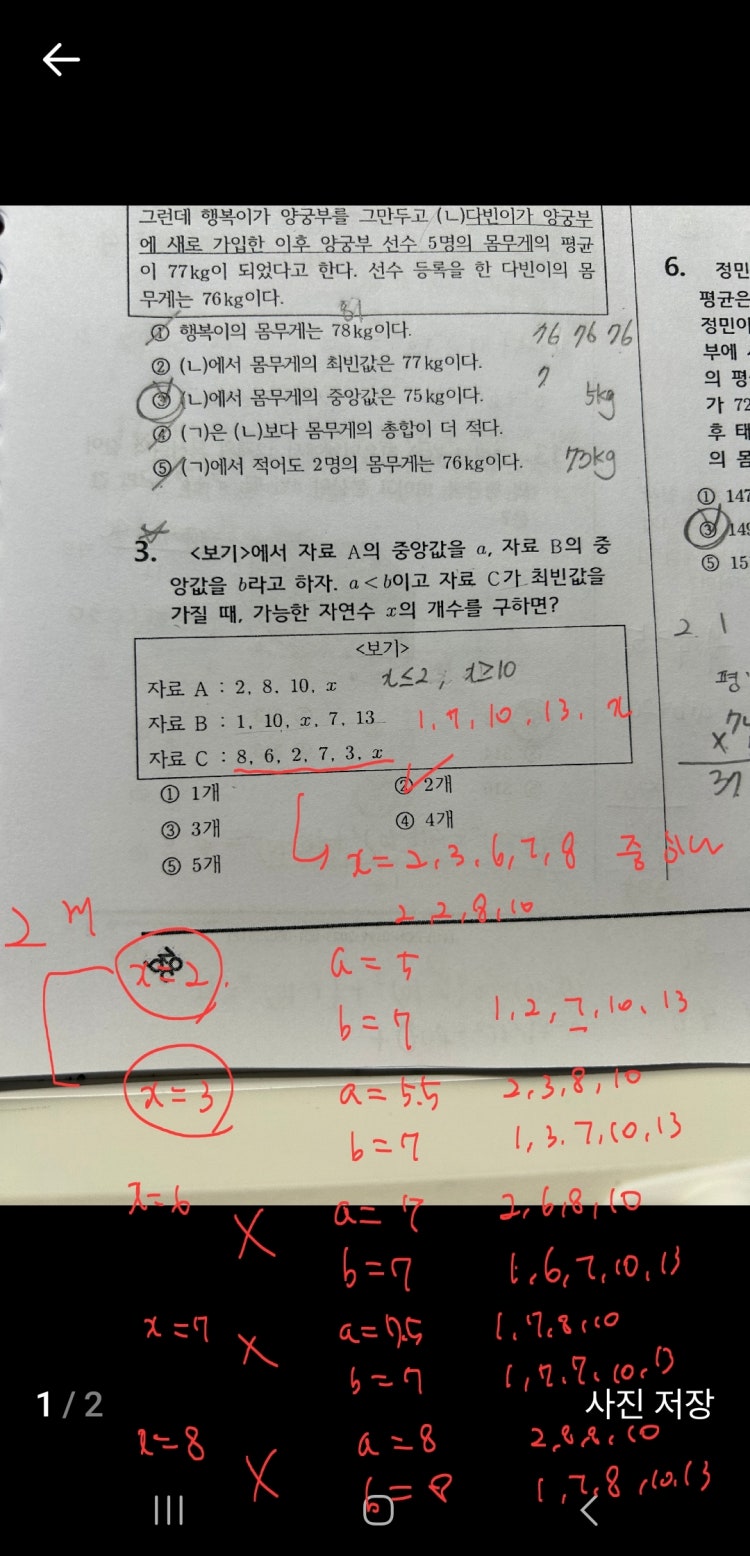 그런데 행복이가 양궁부를 그만두고 (ㄴ)다빈이가 양궁부
에 새로 가입한 이후 양궁부 선수 5명의 몸무게의 평균
이 77kg이 되었다고 한다. 선수 등록을 한 다빈이의 몸
무게는 76kg이다.
81
① 행복이의 몸무게는 78kg이다.
76 76 76
② (ㄴ)에서 몸무게의 최빈값은 77kg이다.
?
③ (ㄴ)에서 몸무게의 중앙값은 75kg이다.
5kg
④ (ㄱ)은 (ㄴ)보다 몸무게의 총합이 더 적다.
⑤ (ㄱ)에서 적어도 2명의 몸무게는 76kg이다.
73kg
3. <보기>에서 자료 A의 중앙값을 a, 자료 B의 중
앙값을 b라고 하자. a<b이고 자료 C가 최빈값을
가질 때, 가능한 자연수 x의 개수를 구하면?
<보기>
자료 A : 2, 8, 10, x
x≤2, x≥10
자료 B : 1, 10, x, 7, 13
1, 7, 10, 13, x
자료 C : 8, 6, 2, 7, 3, x
① 1개
② 2개
③ 3개
④ 4개
⑤ 5개
x=2,3,6,7,8 중 하나
2,2,8,10
x=2
a=5
b=7
1,2,7,10,13
x=3
a=5.5
2,3,8,10
b=7
1,3.7,10,13
x=6
a=7
2,6,8,10
b=7
1,6,7,10,13
x=7
a=7.5
1,7,8,10
b=7
1,7,7,10,13
x=8
a=8
2,8,8,10
b=8
1,7,8,10,13
6. 정민
평균은
정민이
부에
의 평
가 72
후 태
의 몸
① 147
③ 149
⑤ 15
2. 1
평
x
37
1 / 2
사진 저장